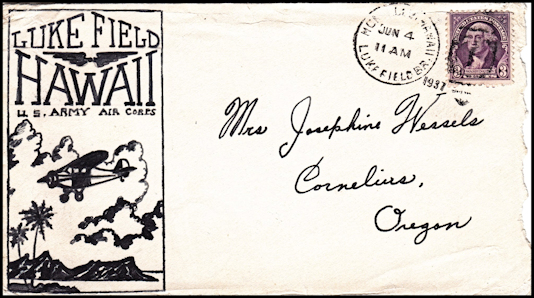 LUKE FIELD
HAWAII
U.S. ARMY AIR CORPS
JUN 4
11 AM
LUKE FIELD BR.
1937
3 3
Mrs Josephine Wessels
Cornelius,
Oregon